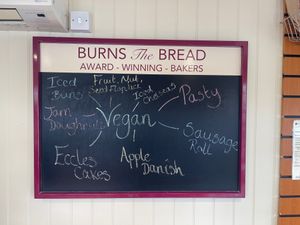 BURNS The BREAD
AWARD - WINNING - BAKERS
Iced
Buns
Fruit, Nut,
Seed Flapjice
Iced
Pasty
Jam
Doughnuts
Vegan
Sausage
Roll
Eccles
Cakes
Apple
Danish